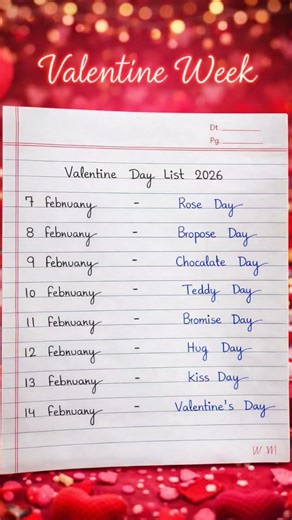 Valentine Week
Dt.
Pg.
Valentine Day List 2026
7 February - Rose Day
8 February - Bropose Day
9 February - Chocalate Day
10 February - Teddy Day
11 February - Bromise Day
12 February - Hug Day
13 February - kiss Day
14 February - Valentine's Day
W M